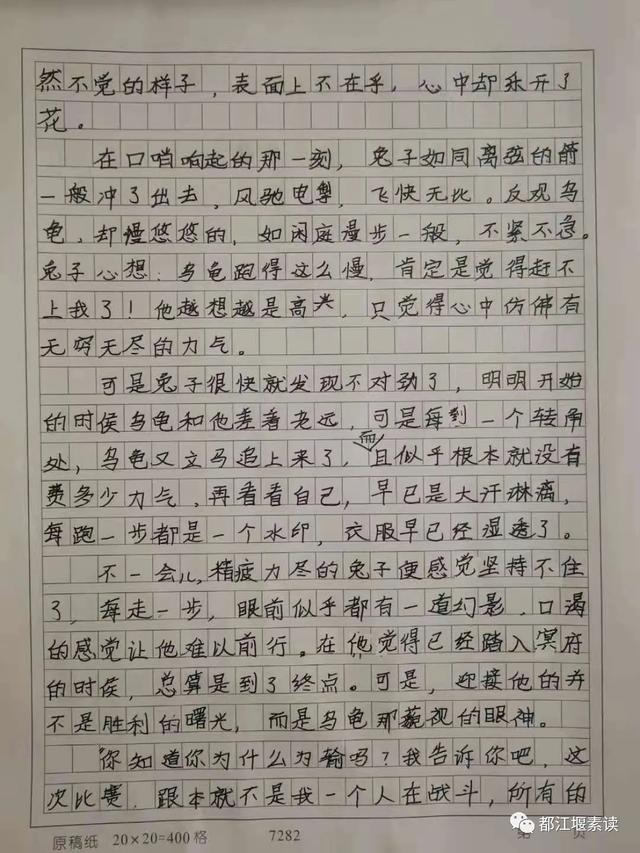 然不觉的样子，表面上不在乎，心中却乐开了
花。
在口哨响起的那一刻，兔子如同离弦的箭
一般冲了出去，风驰电掣，飞快无比。反观乌
龟，却慢悠悠的，如闲庭漫步一般，不紧不急。
兔子心想：乌龟跑得这么慢，肯定是觉得赶不
上我了！他越想越是高兴，只觉得心中仿佛有
无穷无尽的力气。
可是兔子很快就发现不对劲了，明明开始
的时侯乌龟和他差着老远，可是每到一个转角
处，乌龟又立马追上来了，而且似乎根本就没有
费多少力气，再看看自己，早已是大汗淋漓，
每跑一步都是一个水印，衣服早已经湿透了。
不一会儿，精疲力尽的兔子便感觉坚持不住
了，每走一步，眼前似乎都有一道幻影，口渴
的感觉让他难以前行。在他觉得已经踏入冥府
的时侯，总算是到了终点。可是，迎接他的并
不是胜利的曙光，而是乌龟那藐视的眼神。
“你知道你为什么为输吗？我告诉你吧，这
次比赛，跟本就不是我一个人在战斗，所有的
原稿纸 20×20=400格 7282 第 页
都江堰素读